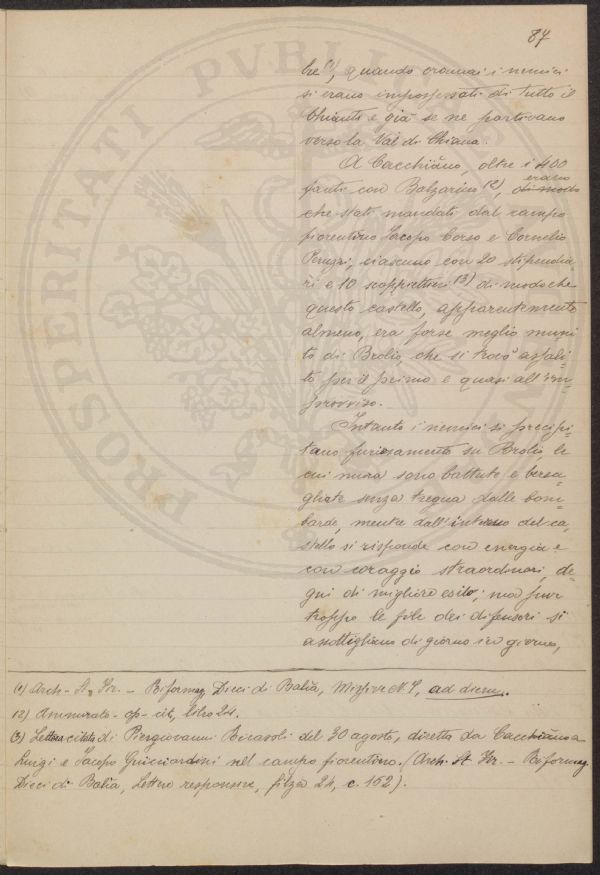 87
bre (1), quando oramai i nemici
si erano impossessati di tutto il
Chianti e già se ne partivano
verso la Val di Chiana.
A Cacchiano, oltre i 400
erano
fanti con Balzarino (2), di modo
che stati mandati dal campo
fiorentino Jacopo Corso e Cornelio
ciascuno con 20 stipendia-
ri e 10 scoppiettieri (3) di modo che
questo castello, apparentemente
almeno, era forse meglio muni-
to di Brolio, che si trovò assali-
to per il primo e quasi all'im-
provviso.
Intanto i nemici si precipi-
tano furiosamente su Brolio, le
cui mura sono battute e bersa-
gliate senza tregua dalle bom-
barde, mentre dall'interno del ca-
stello si risponde con energia e
con coraggio straordinari, de-
gni di migliore esito; ma pur
troppo le file dei difensori si
assottigliano di giorno in giorno,
(1) Arch. St. Fir. - Riformag. Dieci di Balìa, ad diem.
(2) Ammirato - op. cit, libro 24.
(3) Lettera citata di Piergiovanni Ricasoli del 30 agosto, diretta da Cacchiano a
Luigi e Jacopo Guicciardini nel campo fiorentino. (Arch. St. Fir. - Riformag.
Dieci di Balìa, Lettere responsive, filza 24, c. 152).
PROSPERITATI PVBLICAE